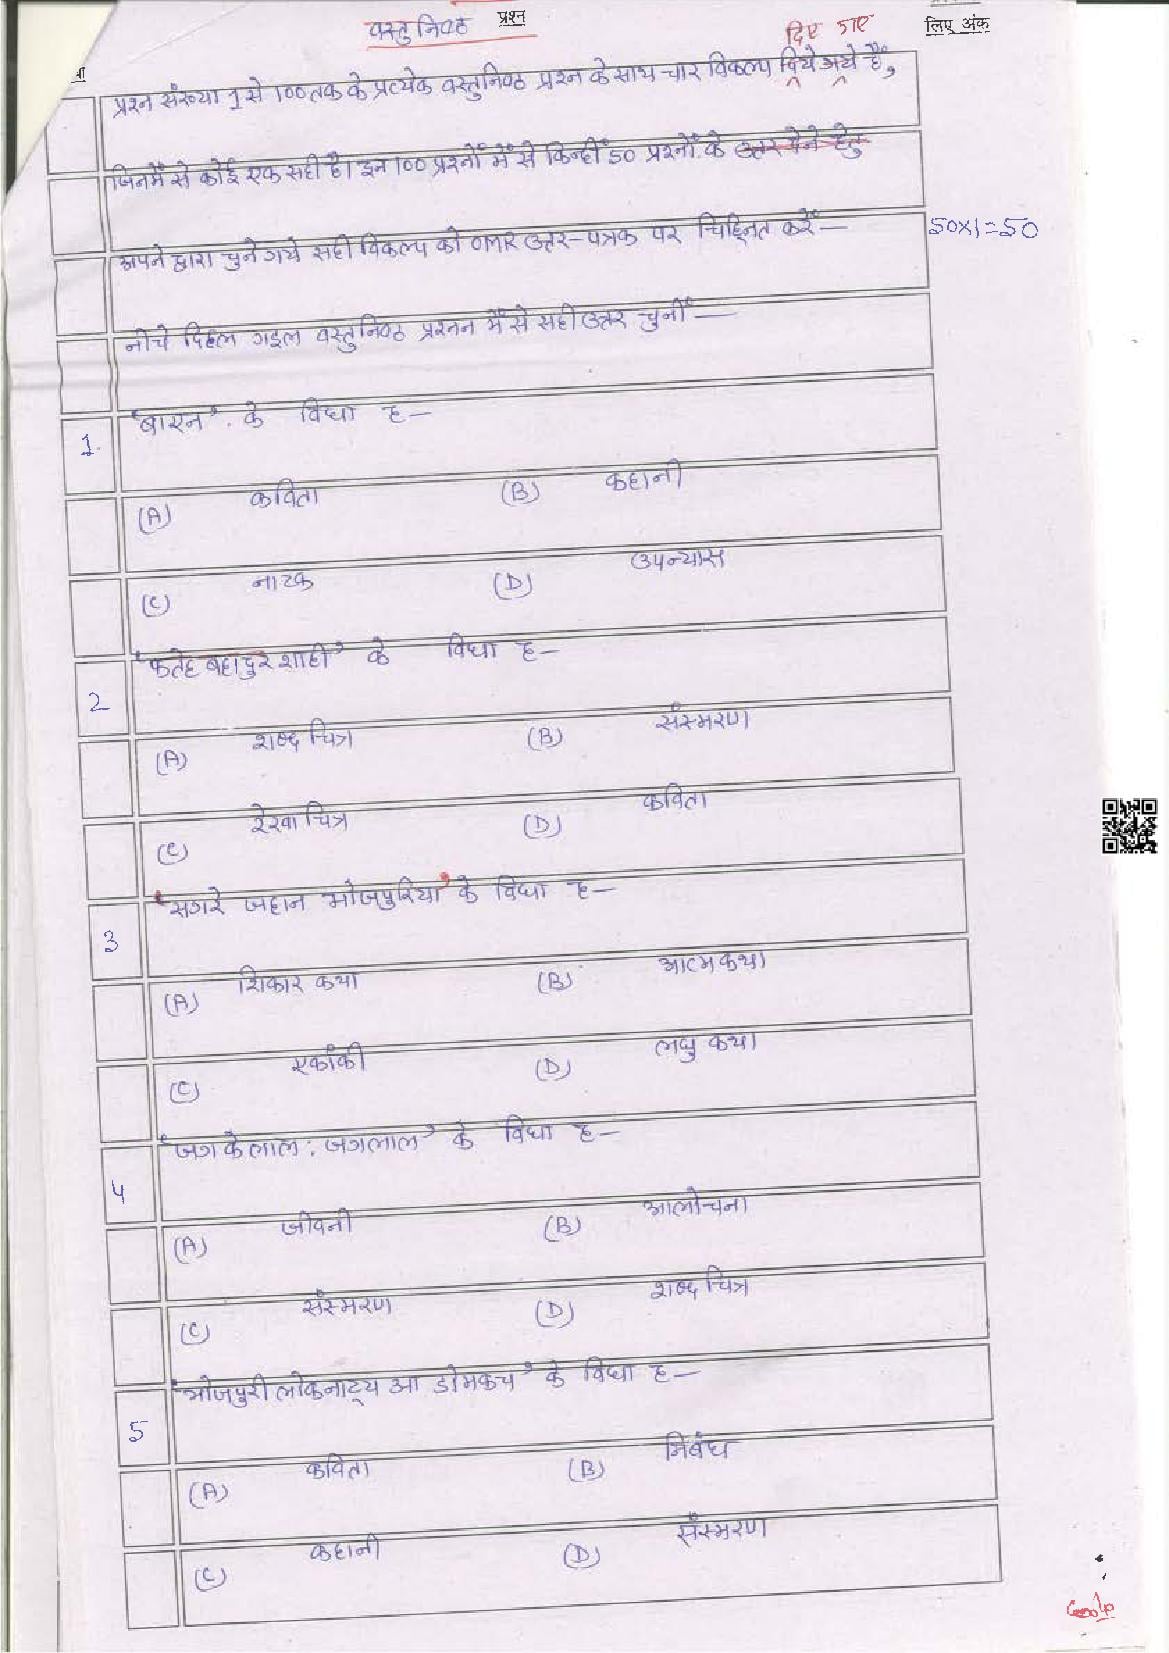 वस्तुनिष्ठ प्रश्न
लिए अंक
दिए गए
प्रश्न संख्या 1 से 100 तक के प्रत्येक वस्तुनिष्ठ प्रश्न के साथ चार विकल्प दिये गये हैं,
जिनमें से कोई एक सही है। इन 100 प्रश्नों में से किन्हीं 50 प्रश्नों के उत्तर देने हेतु
अपने द्वारा चुने गये सही विकल्प को OMR उत्तर-पत्रक पर चिह्नित करें — 50x1=50
नीचे दिहल गइल वस्तुनिष्ठ प्रश्नन में से सही उत्तर चुनीं —
1. 'बाएन' के विधा ह —
(A) कविता (B) कहानी
(C) नाटक (D) उपन्यास
2 'फतेह बहादुर शाही' के विधा ह —
(A) शब्द चित्र (B) संस्मरण
(C) रेखा चित्र (D) कविता
3 'सगरे जहान भोजपुरिया' के विधा ह —
(A) शिकार कथा (B) आत्मकथा
(C) एकांकी (D) लघु कथा
4 'जग के लाल : जगलाल' के विधा ह —
(A) जीवनी (B) आलोचना
(C) संस्मरण (D) शब्द चित्र
5 'भोजपुरी लोकनाट्य आ डोमकच' के विधा ह —
(A) कविता (B) निबंध
(C) कहानी (D) संस्मरण